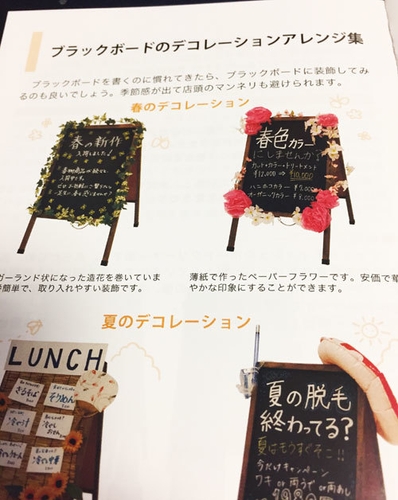 ブラックボードのデコレーションアレンジ集
ブラックボードを書くのに慣れてきたら、ブラックボードに装飾してみ
るのも良いでしょう。季節感が出て店頭のマンネリも避けられます。
春のデコレーション
春の新作
入荷しました♪
春色カラー
にしませんか?
カット+カラー+トリートメント
¥12,000 ⇒ ¥10,000
ハンホフカラー ¥7,000
オーガニックカラー ¥8,000
ガーランド状になった造花を巻いていま
簡単で、取り入れやすい装飾です。
薄紙で作ったペーパーフラワーです。安価で華
やかな印象にすることができます。
夏のデコレーション
LUNCH
ざるそば
そうめん
夏の脱毛
終わってる?
夏はもうすぐそこ!!
今だけキャンペーン
ワキ or 両うで or 両あし